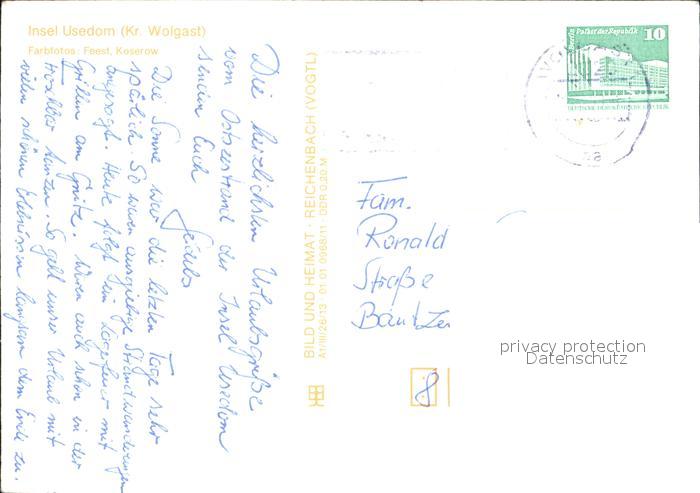 Insel Usedom (Kr. Wolgast)
Farbfotos: Feest, Koserow
Die herzlichsten Urlaubsgrüße
vom Ostseestrand der Insel Usedom
senden Euch
Die Sonne war die letzten Tage sehr
spärlich. So waren ausgiebige Strandwanderungen
angesagt. Heute folgt ein Lagerfeuer mit
Grillen am Waren auch schon in der
tanzen. So geht unser Urlaub mit
vielen schönen Erlebnissen langsam dem Ende zu.
BILD UND HEIMAT · REICHENBACH (VOGTL)
A1/III/26/13 01 01 0968/11 · DDR 0,20 M
Berlin Palast der Republik
10
DEUTSCHE DEMOKRATISCHE REPUBLIK
Fam.
Ronald
Straße
Bautzen
8
privacy protection
Datenschutz